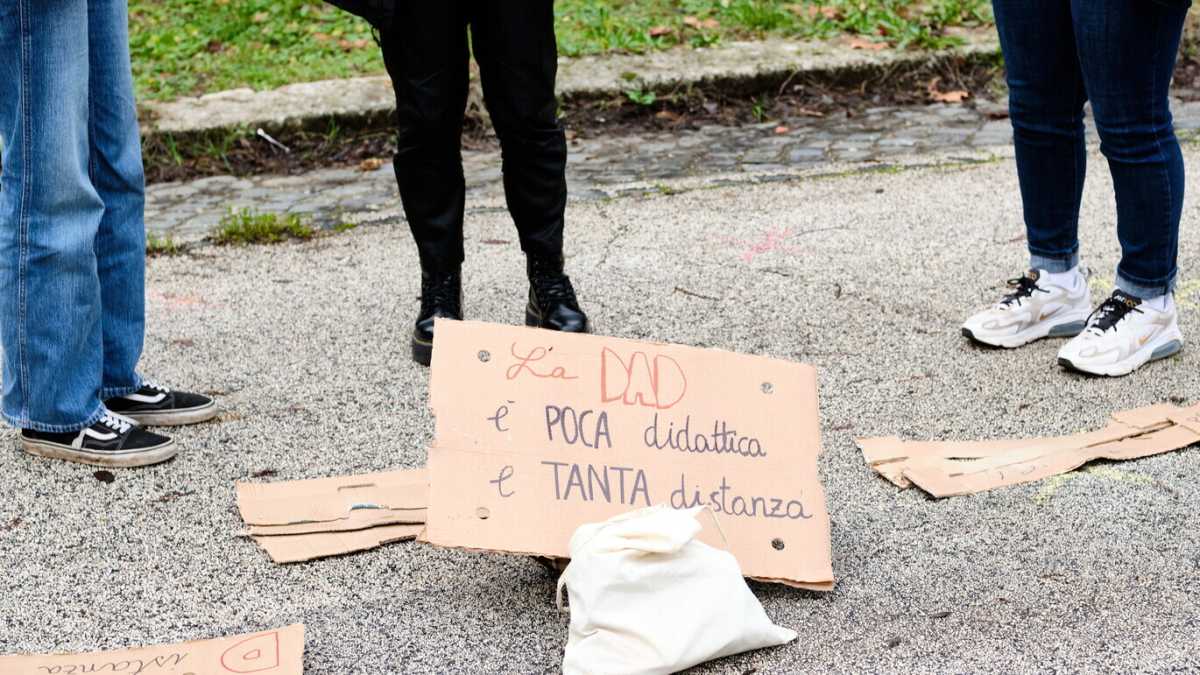 La DAD
è POCA didattica
e TANTA distanza
Distanza D